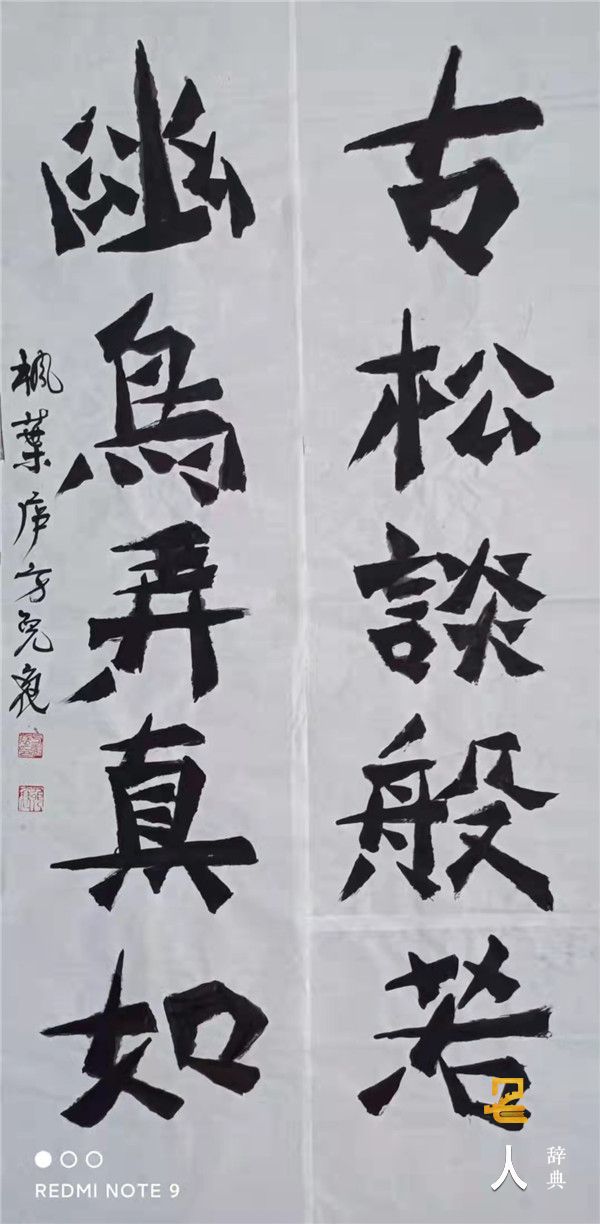 古松談般若
幽鳥弄真如
枫葉庐方
REDMI NOTE 9
名人
辞典